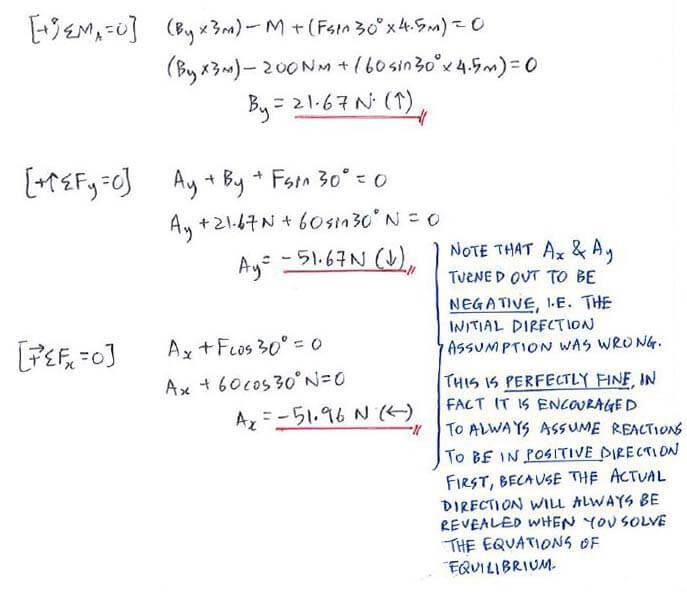 [+↺ ΣM_A=0] (By×3m) − M + (Fsin30°×4.5m) = 0
(By×3m) − 200Nm + (60sin30°×4.5m) = 0
By = 21.67 N (↑)
[+↑ΣFy=0] Ay + By + Fsin30° = 0
Ay + 21.67N + 60sin30°N = 0
Ay = −51.67N (↓)
[→+ ΣFx=0] Ax + Fcos30° = 0
Ax + 60cos30°N = 0
Ax = −51.96 N (←)
NOTE THAT Ax & Ay
TURNED OUT TO BE
NEGATIVE, I.E. THE
INITIAL DIRECTION
ASSUMPTION WAS WRONG.
THIS IS PERFECTLY FINE, IN
FACT IT IS ENCOURAGED
TO ALWAYS ASSUME REACTIONS
TO BE IN POSITIVE DIRECTION
FIRST, BECAUSE THE ACTUAL
DIRECTION WILL ALWAYS BE
REVEALED WHEN YOU SOLVE
THE EQUATIONS OF
EQUILIBRIUM.